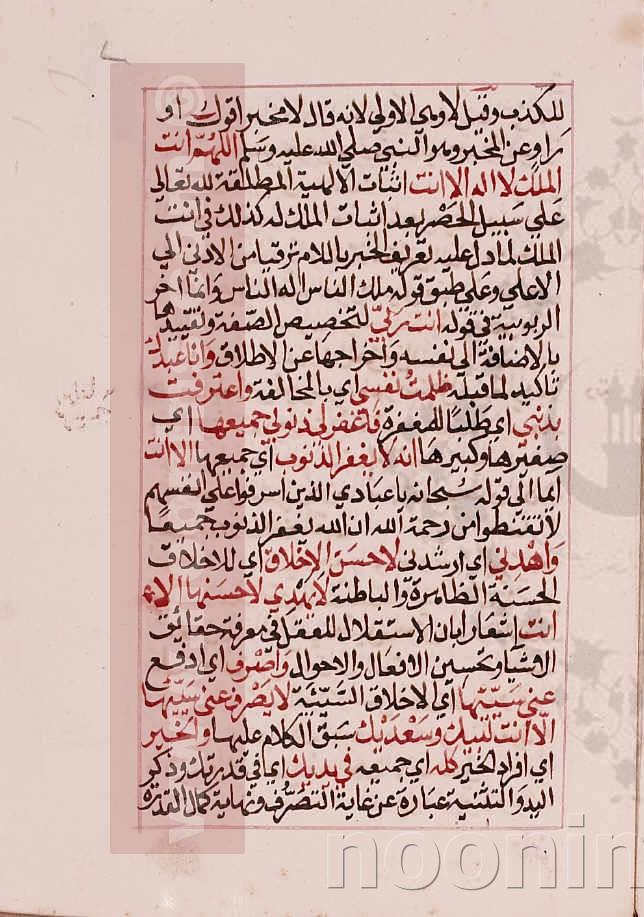 للكذب وقيل لاوى الاولى لانه قال لا مخيرا قوك او
راو عن المخبر وهو النبي صلى الله عليه وسلم اللهم انت
الملك لا اله الا انت اثبات الالهية المطلقة لله تعالى
على سبيل الحصر بعد اثبات الملك له كذلك في انت
الملك لما دل عليه تعريف الخبر باللام ترقيا من الادنى الى
الاعلى وعلى طبق قوله ملك الناس اله الناس وانما اخر
الربوبية في قوله انت ربي لتخصيص الصفة وتقييدها
بالاضافة الى نفسه واخراجها عن الاطلاق وانا عبدك
تاكيد لما قبله ظلمت نفسي اي بالمخالفة واعترفت
بذنبي اي طلبا للمغفرة فاغفر لي ذنوبي جميعها اي
صغيرها وكبيرها انه لا يغفر الذنوب اي جميعها الا انت
ايما الى قوله سبحانه يا عبادي الذين اسرفوا على انفسهم
لا تقنطوا من رحمة الله ان الله يغفر الذنوب جميعا
واهدني اي ارشدني لاحسن الاخلاق اي للاخلاق
الحسنة الظاهرة والباطنة لا يهدي لاحسنها الا
انت اشعار ابان الاستقلال للعقل في معرفة حقائق
الاشيا وتحسين الافعال والاحوال واصرف اي ادفع
عني سيئها اي الاخلاق السيئة لا يصرف عني سيئها
الا انت لبيك وسعديك سبق الكلام عليها والخير
اي افراد الخير كله اي جميعه في يديك اي في قدرتك وذكر
اليد والتثنية عبارة عن غاية التصرف ونهاية كمال القدرة
noonin